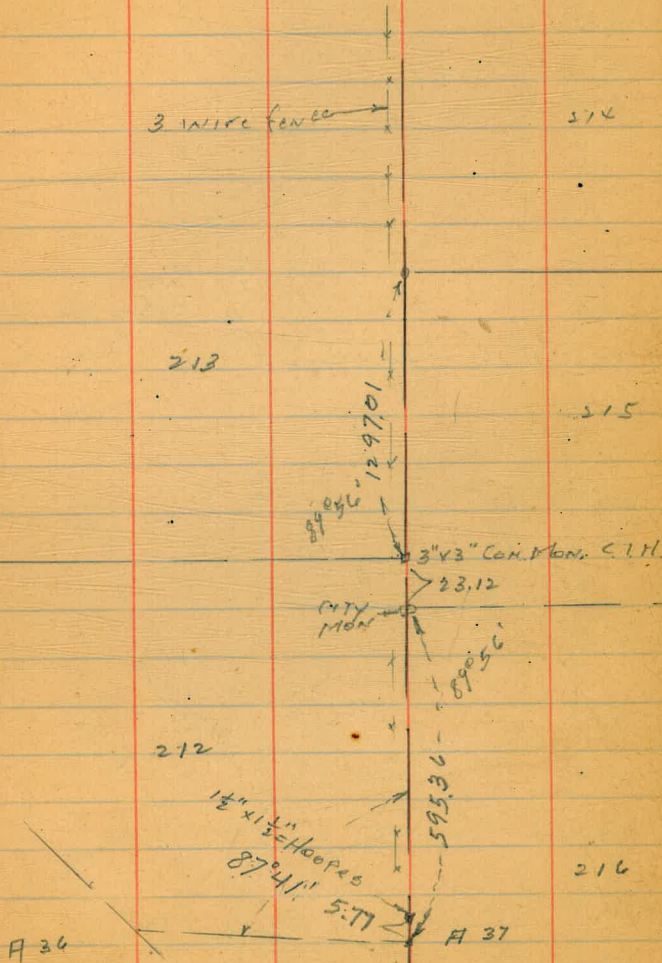 3 wire fence
214
213
1297.01
215
89°56'
3"x3" Con. Mon. C.I.M.
23.12
CITY
MON
89°56'
212
595.36
1½"x1½"
87°41'
5.77
216
A 36
A 37